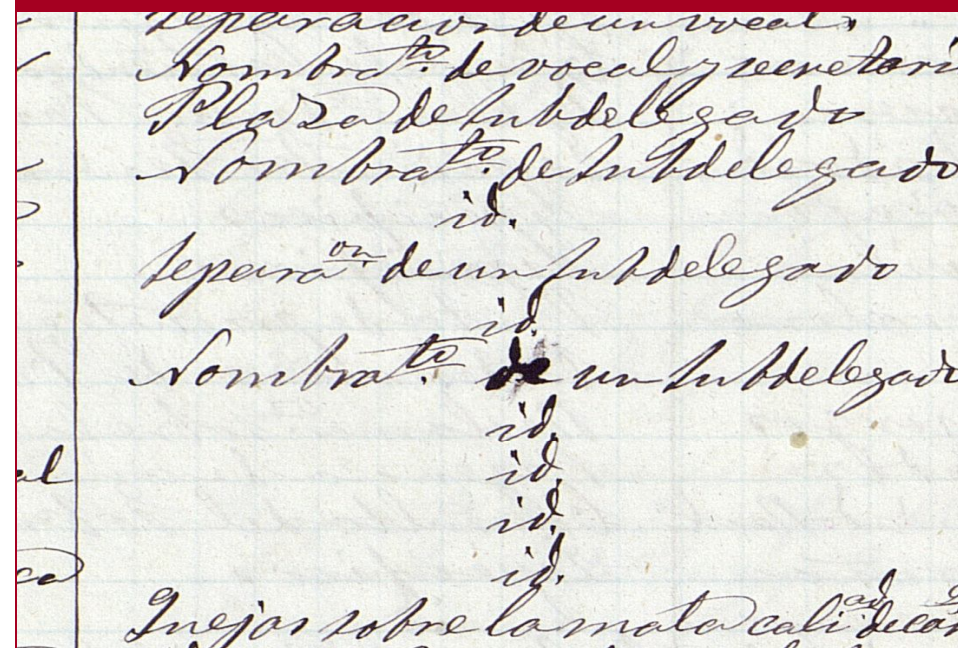 separacion de un vocal.
Nombra.to de vocal y secretari
Plaza de subdelegado
Nombra.to de subdelegado
id.
separa.on de un subdelegado
id.
Nombra.to de un subdelegado
id.
id.
al
id.
id.
Quejas sobre la mala cali.ad de